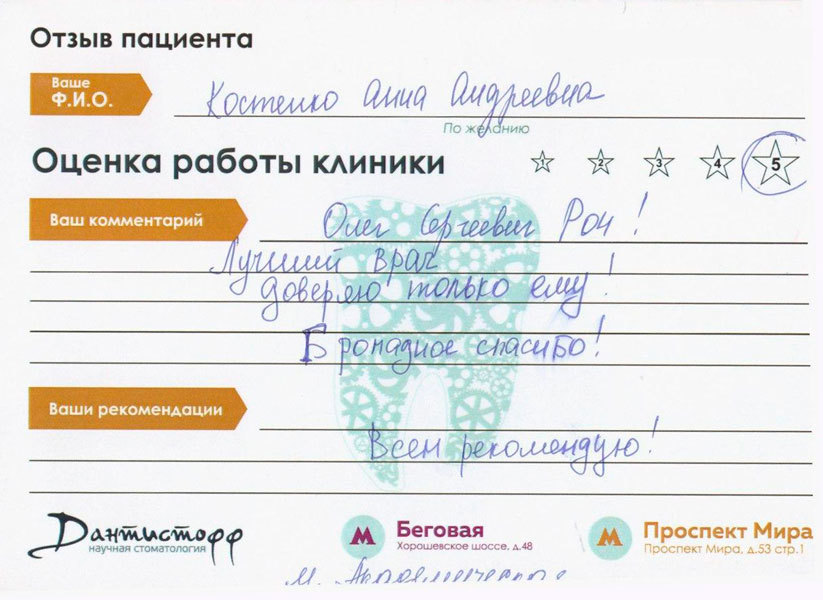 Отзыв пациента
Ваше
Ф.И.О.
Костенко Анна Андреевна
По желанию
Оценка работы клиники
1 2 3 4 5
Ваш комментарий
Олег Сергеевич Рон!
Лучший врач
доверяю только ему!
Громадное спасибо!
Ваши рекомендации
Всем рекомендую!
Дантистофф
научная стоматология
М Беговая
Хорошевское шоссе, д.48
М Проспект Мира
Проспект Мира, д.53 стр.1
м.